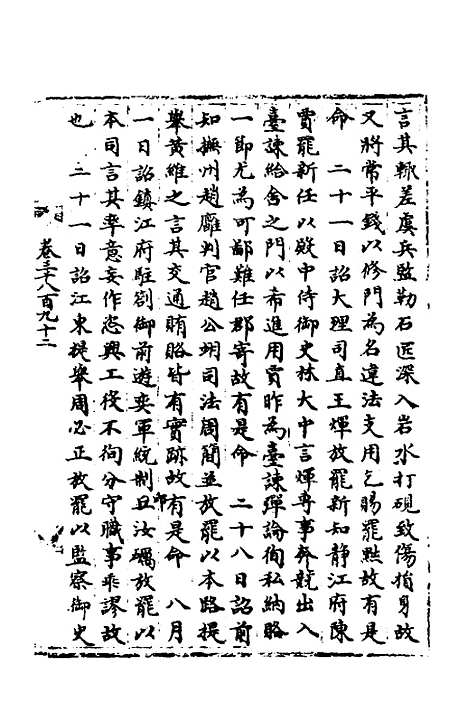 言其輒差虞兵監勒石匠深入岩水打硯致傷損身故
又將常平錢以修門為名違法支用乞賜罷黜故有是
命　二十一日詔大理司直王煇放罷新知靜江府陳
賈罷新任以殿中侍御史林大中言煇專事奔競出入
臺諫給舍之門以希進用賈昨為臺諫彈論徇私納賂
一郡尤為可鄙難任郡寄故有是命　二十八日詔前
知撫州趙廱判官趙公明司法周簡並放罷以本路提
舉黃維之言其交通賄賂皆有實跡故有是命　八月
一日詔鎮江府駐劄御前遊奕軍統制且汝礪放罷以
本司言其率意妄作恣興工役不徇分守職事乖謬故
也　二十一日詔江東提舉周必正放罷以監察御史
卷三千八百九十二